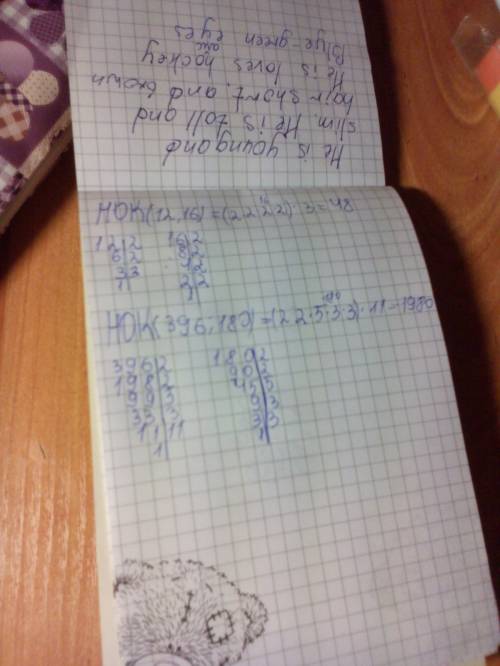 He is young and
slim. He is toll and
hair short. and brown
He is loves hockey
are
Blue-green eyes
16
НОК(12,16)=(2 2 2 2)·3=48
12|2 16|2
6|2 8|2
3|3
1 2|2
1
180
НОК(396,180)=(2 2·5·3·3)·11=1980
396|2 180|2
198|2 90|2
99|3 45|5
33|3 9|3
11|11 3|3
1 1